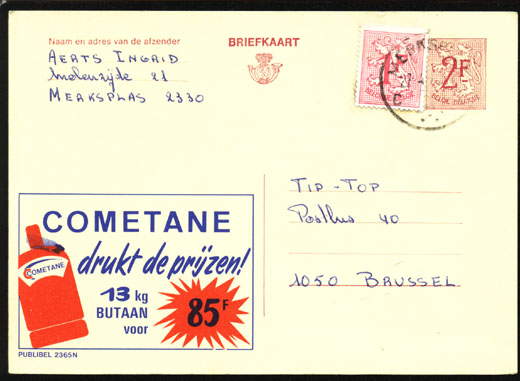 Naam en adres van de afzender
BRIEFKAART
AERTS INGRID
Molenzijde 21
MERKSPLAS 2330
1F
BELGIE-BELGIQUE
2F
BELGIE-BELGIQUE
C
TIP-TOP
Postbus 40
1050 BRUSSEL
COMETANE
drukt de prijzen!
COMETANE
13 kg
BUTAAN
voor
85F
PUBLIBEL 2365N